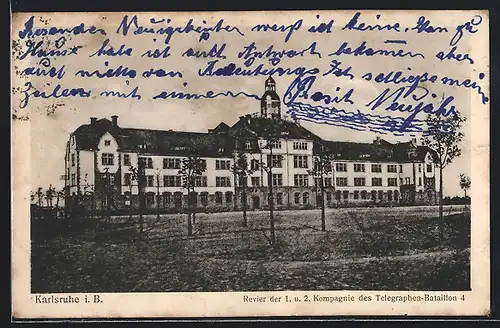 Besonder Neuigkeiten weiß ich keine. Von
Kunst habe ich auch Antwort bekommen aber
auch nichts von Bedeutung. Ist schließe mein
Zeilen mit einem Prosit Neujahr
Karlsruhe i. B.
Revier der 1. u. 2. Kompagnie des Telegraphen-Bataillon 4